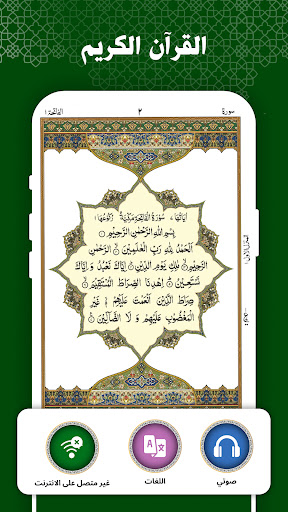 القرآن الكريم
سورة ٢ الفاتحة ١
اٰيَاتُهَا ٧ سُوْرَةُ الْفَاتِحَةِ مَكِّيَّةٌ رُكُوْعُهَا ١
بِسْمِ اللّٰهِ الرَّحْمٰنِ الرَّحِيْمِ
اَلْحَمْدُ لِلّٰهِ رَبِّ الْعٰلَمِيْنَ ۝ الرَّحْمٰنِ
الرَّحِيْمِ ۝ مٰلِكِ يَوْمِ الدِّيْنِ ۝ اِيَّاكَ نَعْبُدُ وَ اِيَّاكَ
نَسْتَعِيْنُ ۝ اِهْدِنَا الصِّرَاطَ الْمُسْتَقِيْمَ ۝
صِرَاطَ الَّذِيْنَ اَنْعَمْتَ عَلَيْهِمْ ۙ غَيْرِ
الْمَغْضُوْبِ عَلَيْهِمْ وَ لَا الضَّآلِّيْنَ ۝
صوتي
اللغات
غير متصل على الانترنت